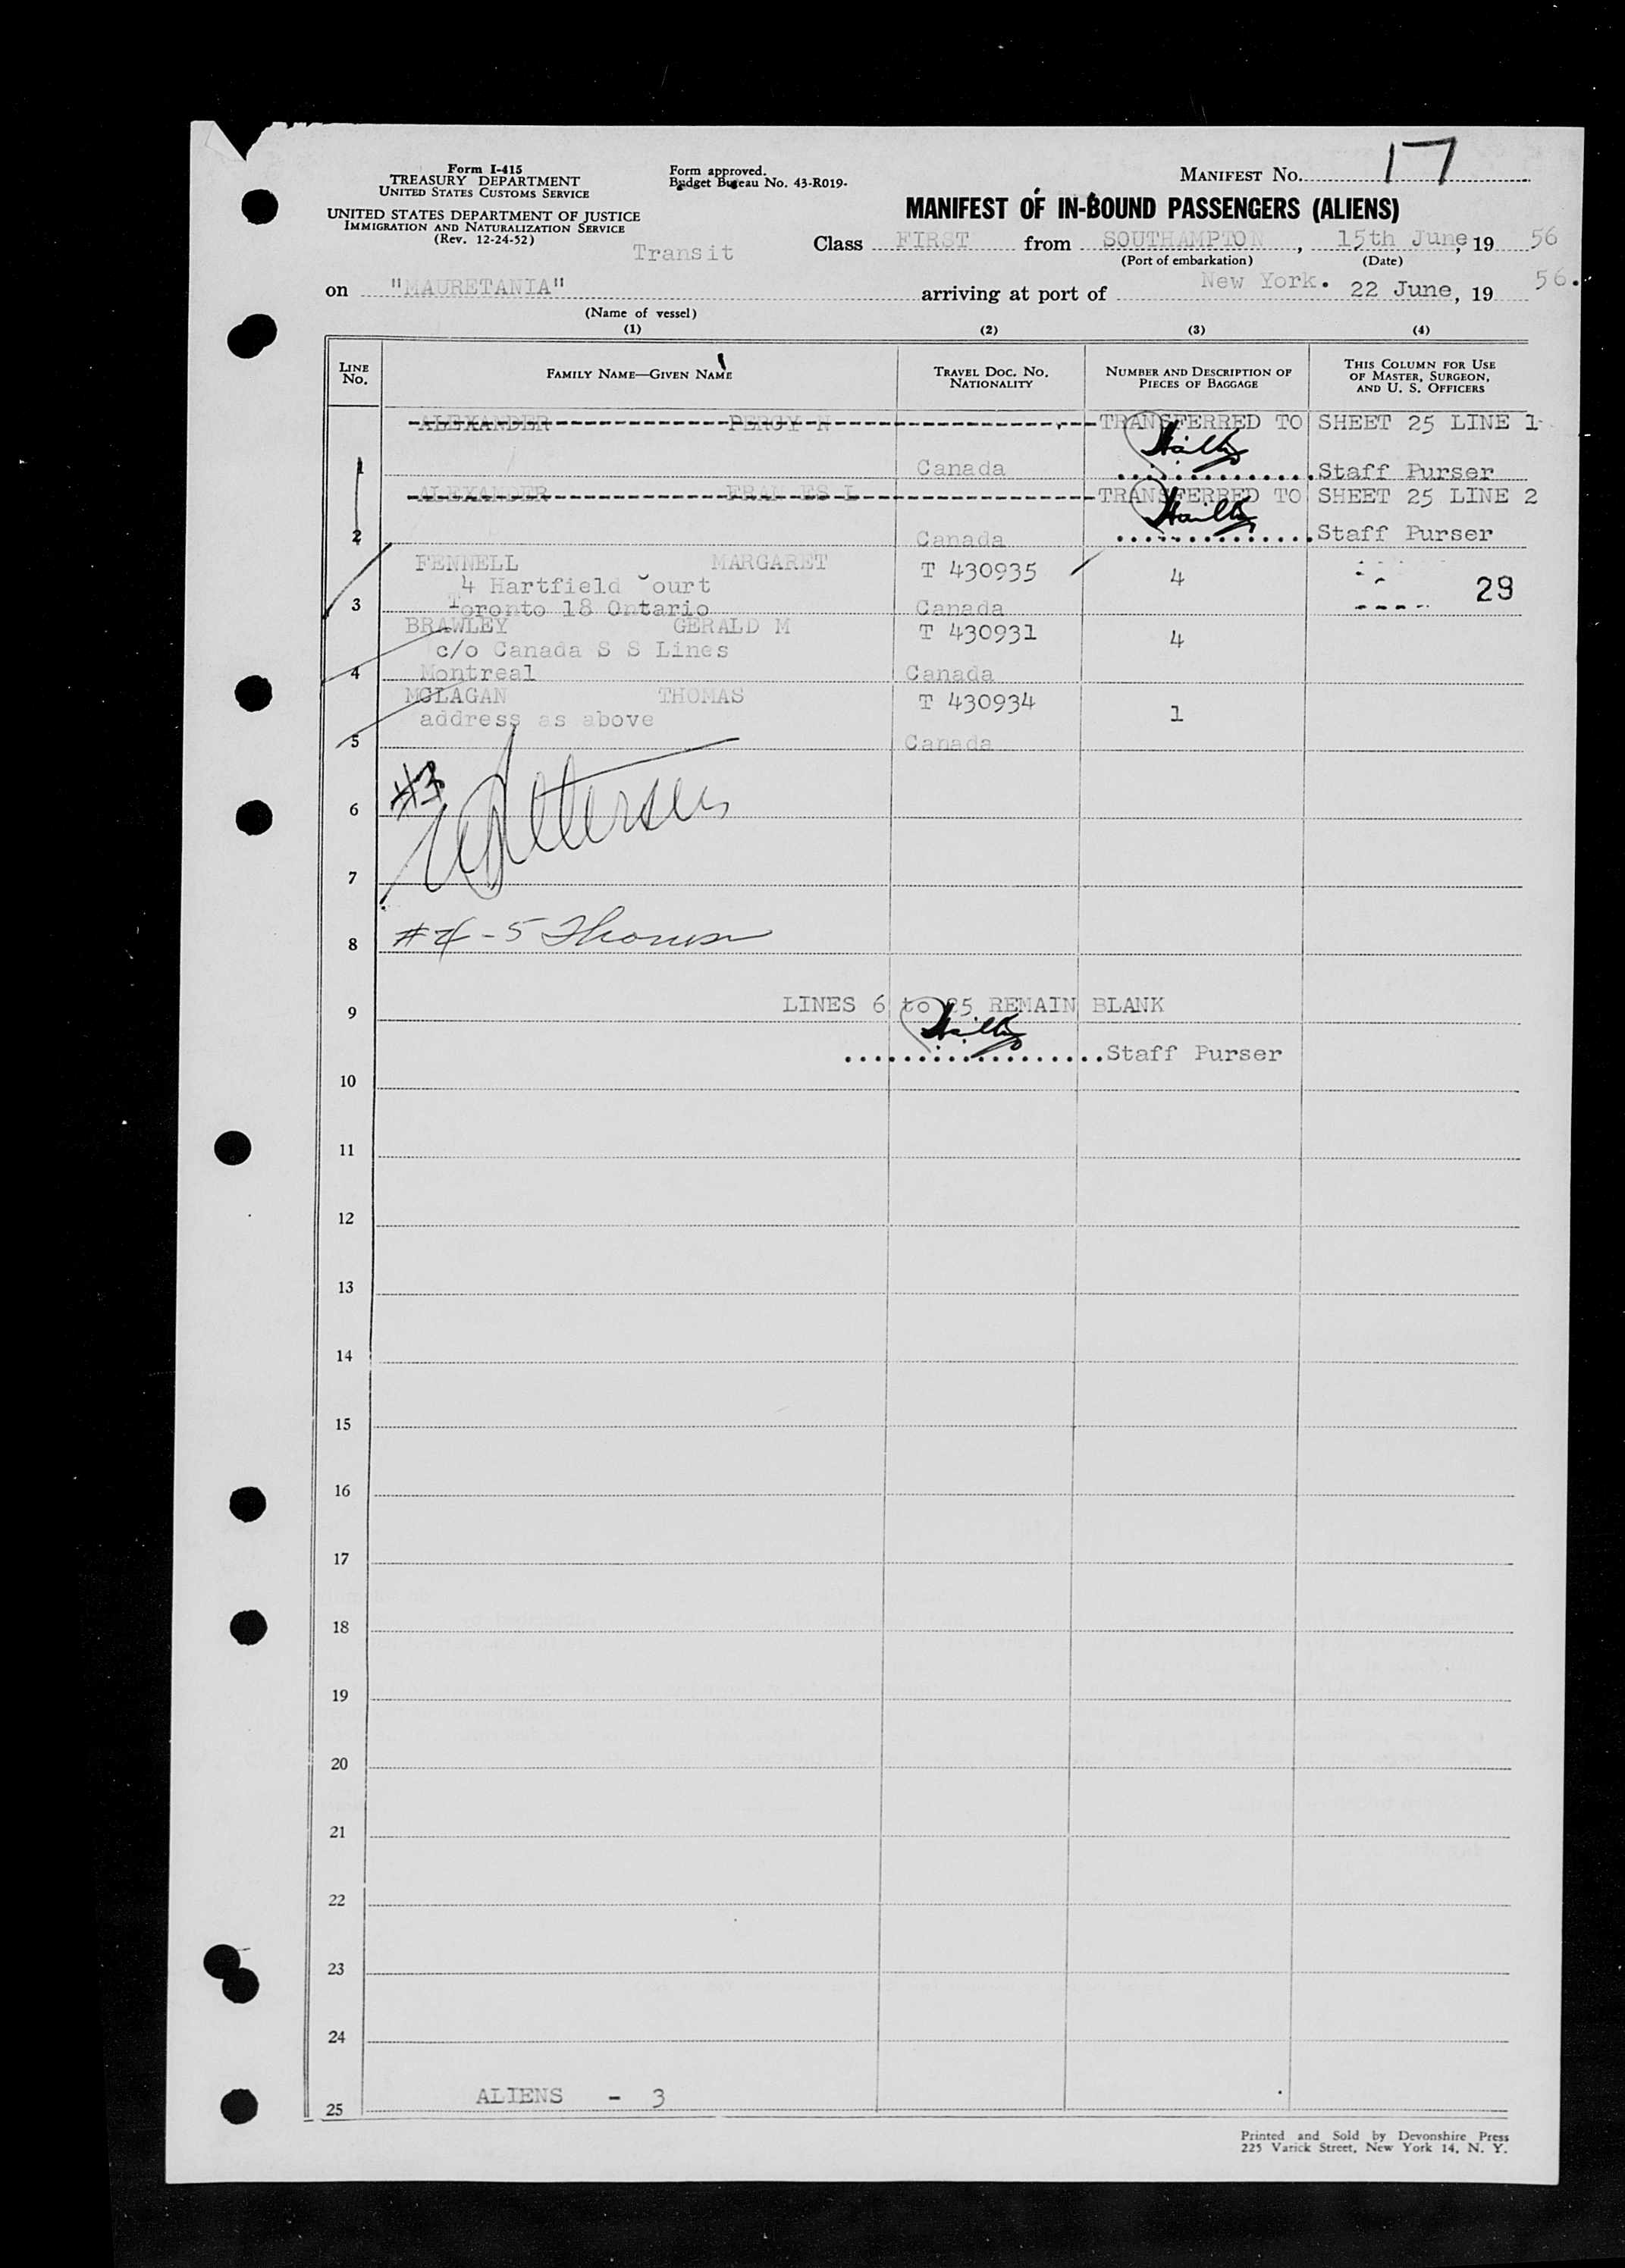 Form I-415
TREASURY DEPARTMENT
UNITED STATES CUSTOMS SERVICE
UNITED STATES DEPARTMENT OF JUSTICE
IMMIGRATION AND NATURALIZATION SERVICE
(Rev. 12-24-52)
Form approved.
Budget Bureau No. 43-R019-
MANIFEST NO. 17
MANIFEST OF IN-BOUND PASSENGERS (ALIENS)
Transit Class FIRST from SOUTHAMPTON, 15th June, 19 56
(Port of embarkation) (Date)
on "MAURETANIA" arriving at port of New York. 22 June, 19 56.
(Name of vessel)
(1) (2) (3) (4)
LINE NO. FAMILY NAME—GIVEN NAME TRAVEL DOC. NO. NATIONALITY NUMBER AND DESCRIPTION OF PIECES OF BAGGAGE THIS COLUMN FOR USE OF MASTER, SURGEON, AND U. S. OFFICERS
ALEXANDER PERCY N TRANSFERRED TO SHEET 25 LINE 1
1 Canada Staff Purser
ALEXANDER FRAN ES L TRANSFERRED TO SHEET 25 LINE 2
2 Canada Staff Purser
FENNELL MARGARET T 430935 4 29
4 Hartfield Court
3 Toronto 18 Ontario Canada
BRAWLEY GERALD M T 430931 4
c/o Canada S S Lines
4 Montreal Canada
MCLAGAN THOMAS T 430934 1
address as above
5 Canada
#3
6
7
8 #4-5 Thomson
LINES 6 to 25 REMAIN BLANK
9
Staff Purser
10
11
12
13
14
15
16
17
18
19
20
21
22
23
24
ALIENS - 3
25
Printed and Sold by Devonshire Press
225 Varick Street, New York 14, N. Y.